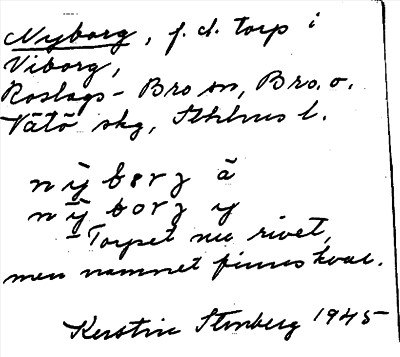 Nyborg, f. d. torp i
Viborg,
Roslags-Bro sn, Bro. o.
Vätö skg, Sthlms l.
nȳborg ä
nȳborg y
- Torpet nu rivet,
men namnet finns kvar.
Kerstin Stenberg 1945